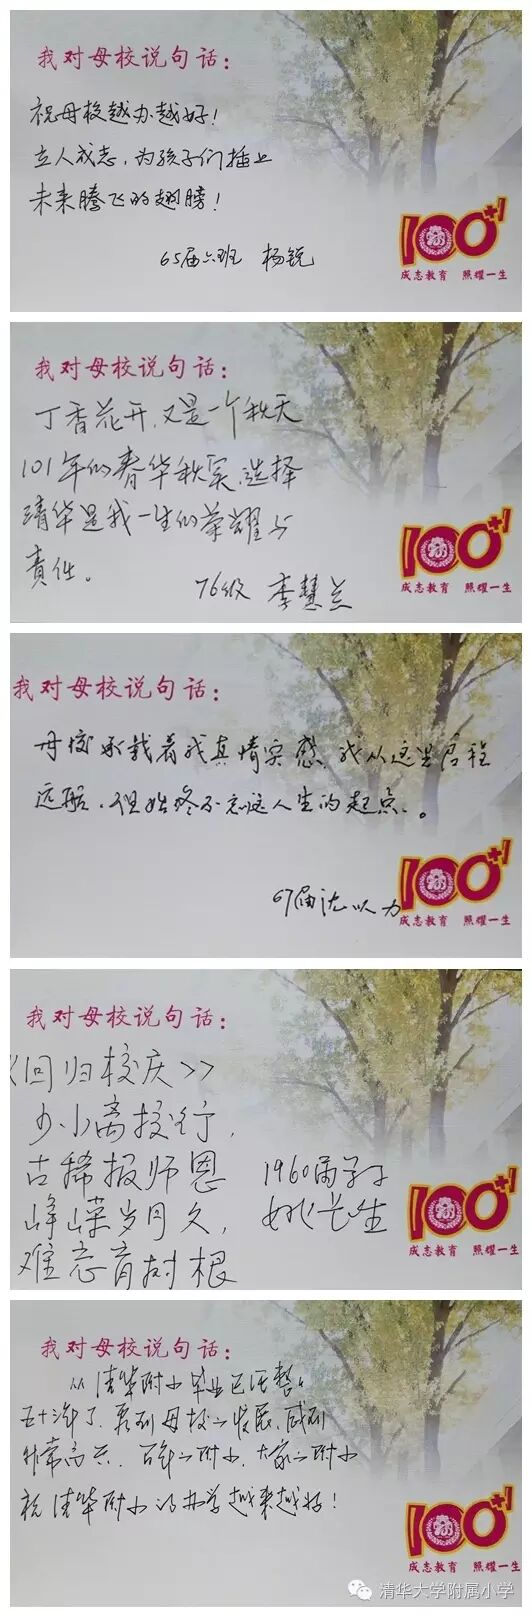 我对母校说句话：
祝母校越办越好！
立人成志，为孩子们插上
未来腾飞的翅膀！
65届六班 杨锐
100+1
成志教育 照耀一生
我对母校说句话：
丁香花开，又是一个秋天
101年的春华秋实，选择
清华是我一生的荣耀与
责任。
76级 李慧兰
100+1
成志教育 照耀一生
我对母校说句话：
母校承载着我真情实感，我从这里启程
远航，但始终不忘这人生的起点。
67届沈以力
100+1
成志教育 照耀一生
我对母校说句话：
《回归校庆>>
少小离校行，
古稀报师恩
峥嵘岁月久，
难忘育树根
1960 学子
姚长生
100+1
成志教育 照耀一生
我对母校说句话：
从清华附小毕业已经整整
五十年了，看到母校的发展，感到
非常高兴，百年的附小，大家的附小
祝清华附小的办学越来越好！
100+1
成志教育 照耀一生
清华大学附属小学